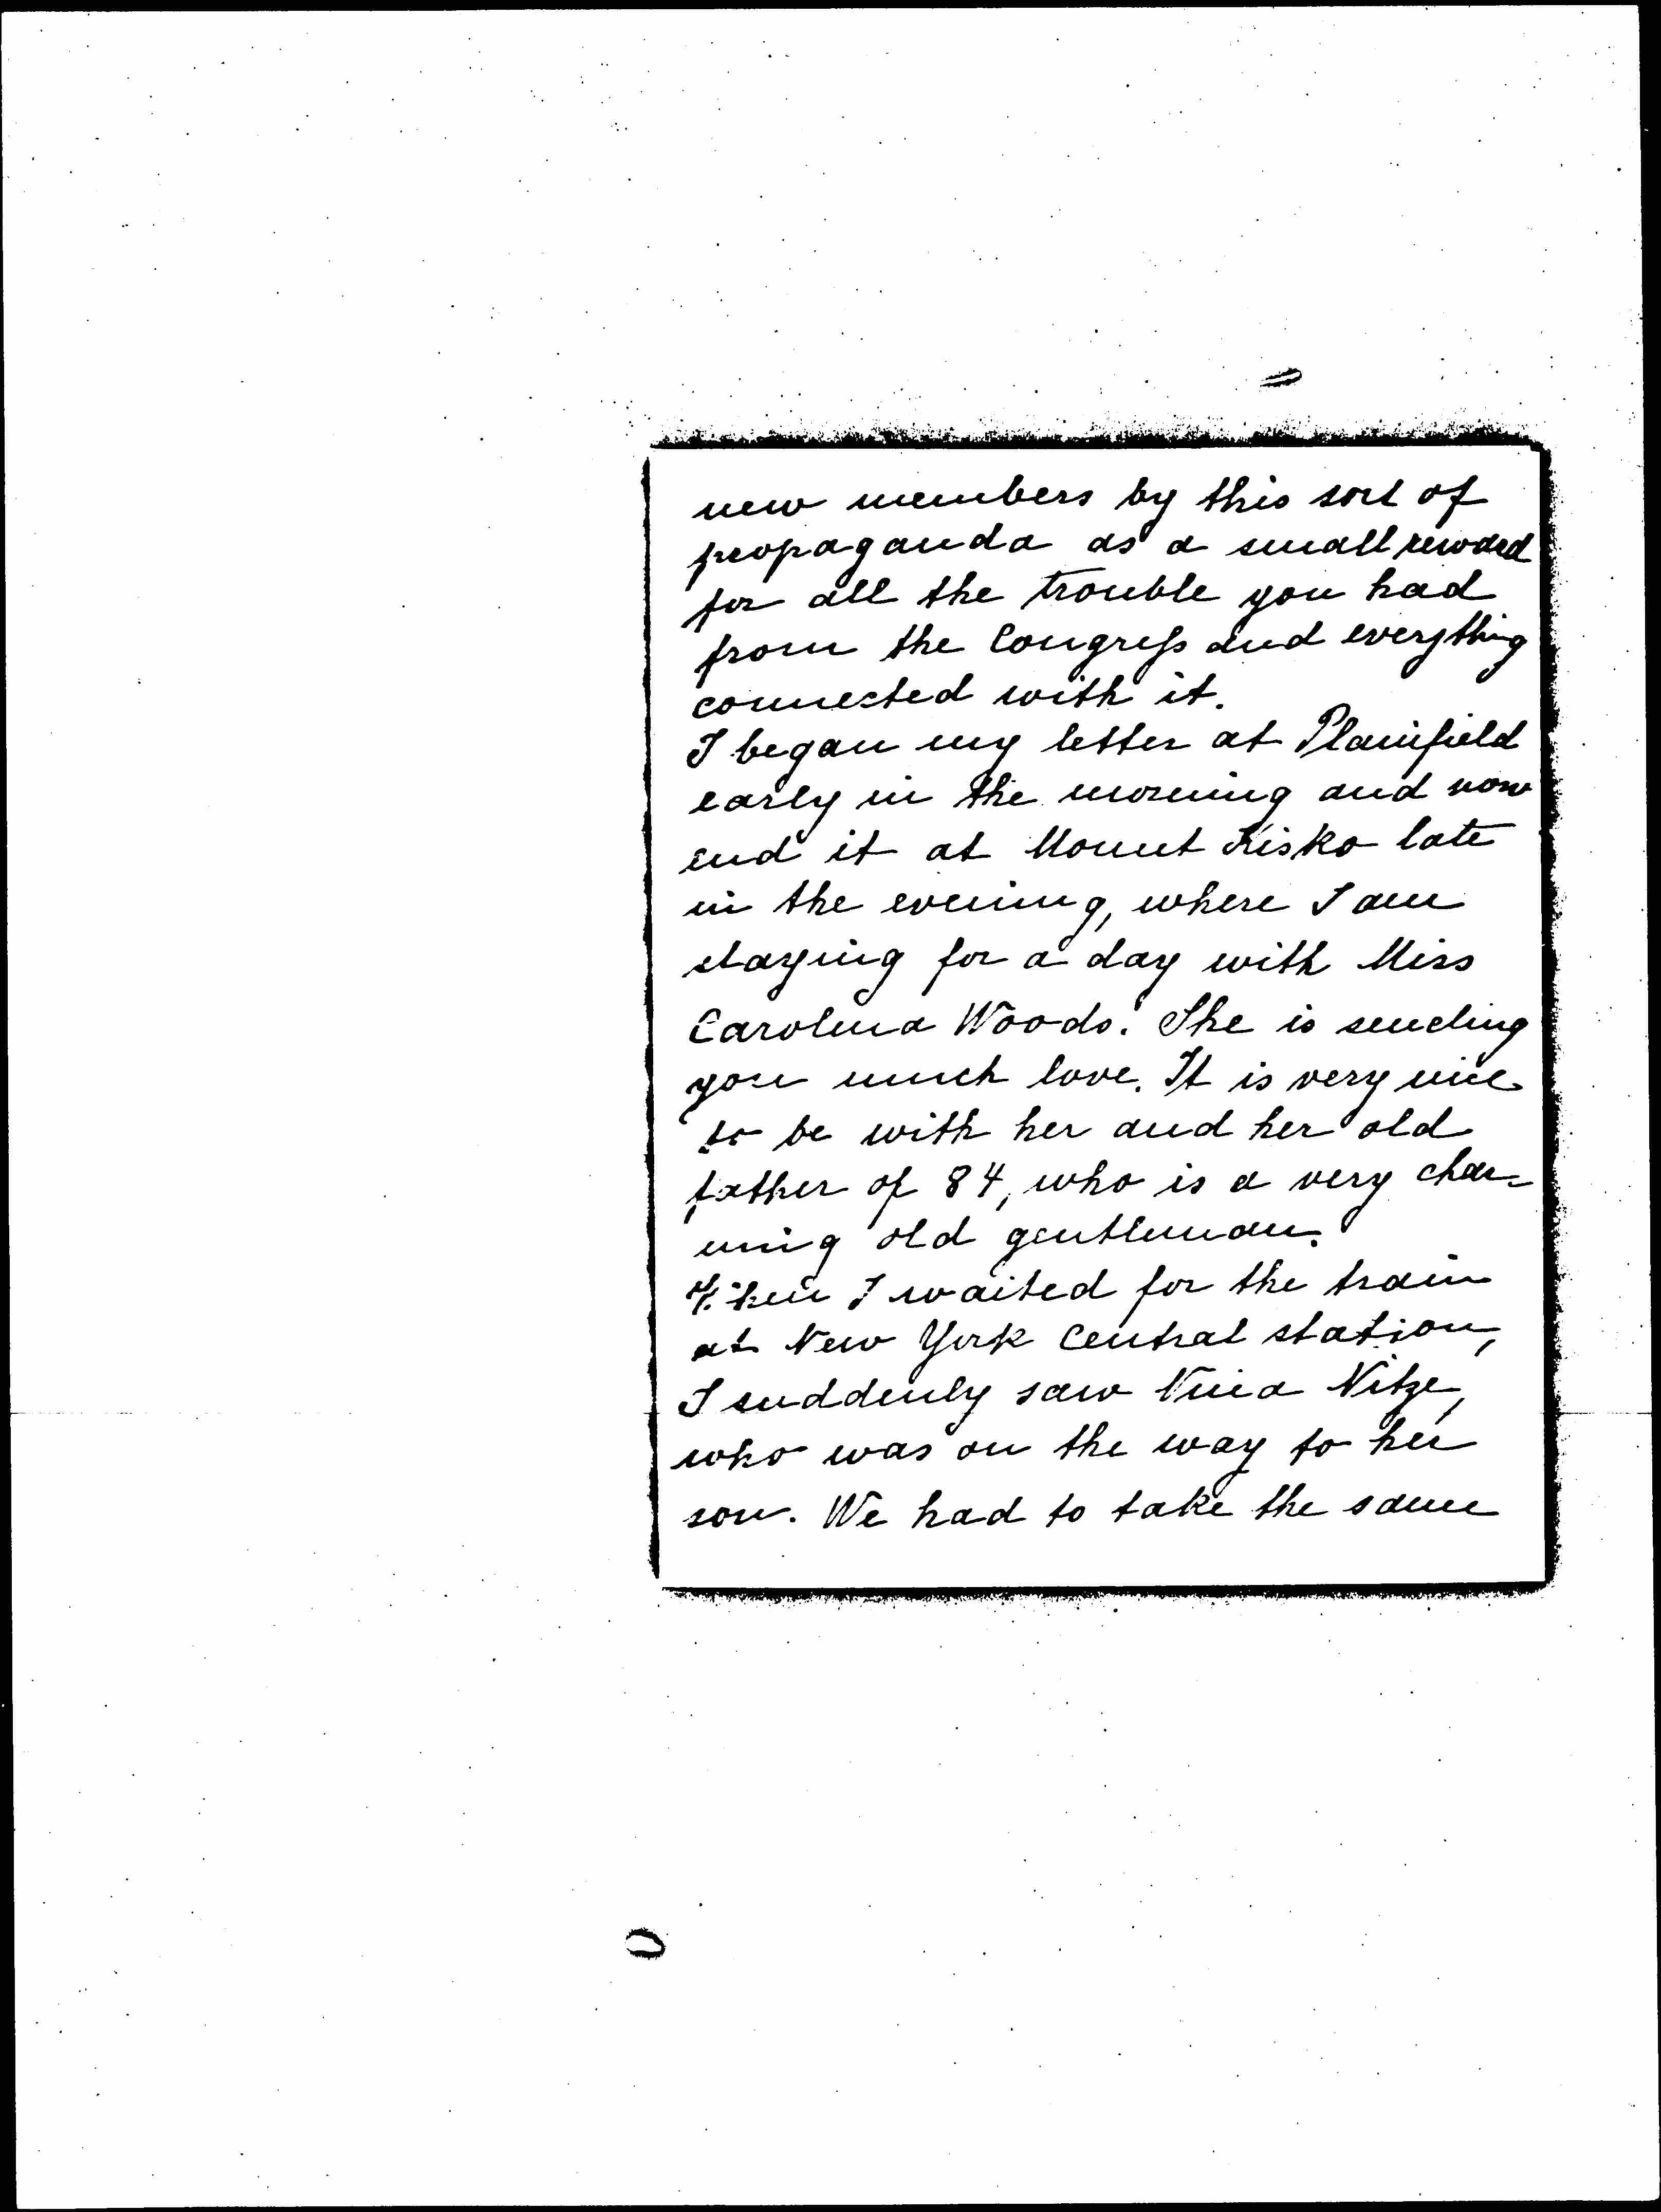 new members by this sort of
propaganda as a small reward
for all the trouble you had
from the Congress and everything
connected with it.
I began my letter at Plainfield
early in the morning and now
end it at Mount Kisko late
in the evening, where I am
staying for a day with Miss
Carolina Woods. She is sending
you much love. It is very nice
to be with her and her old
father of 84, who is a very char-
ming old gentleman.
When I waited for the train
at New York Central station,
I suddenly saw Nina Nitze,
who was on the way to her
son. We had to take the same